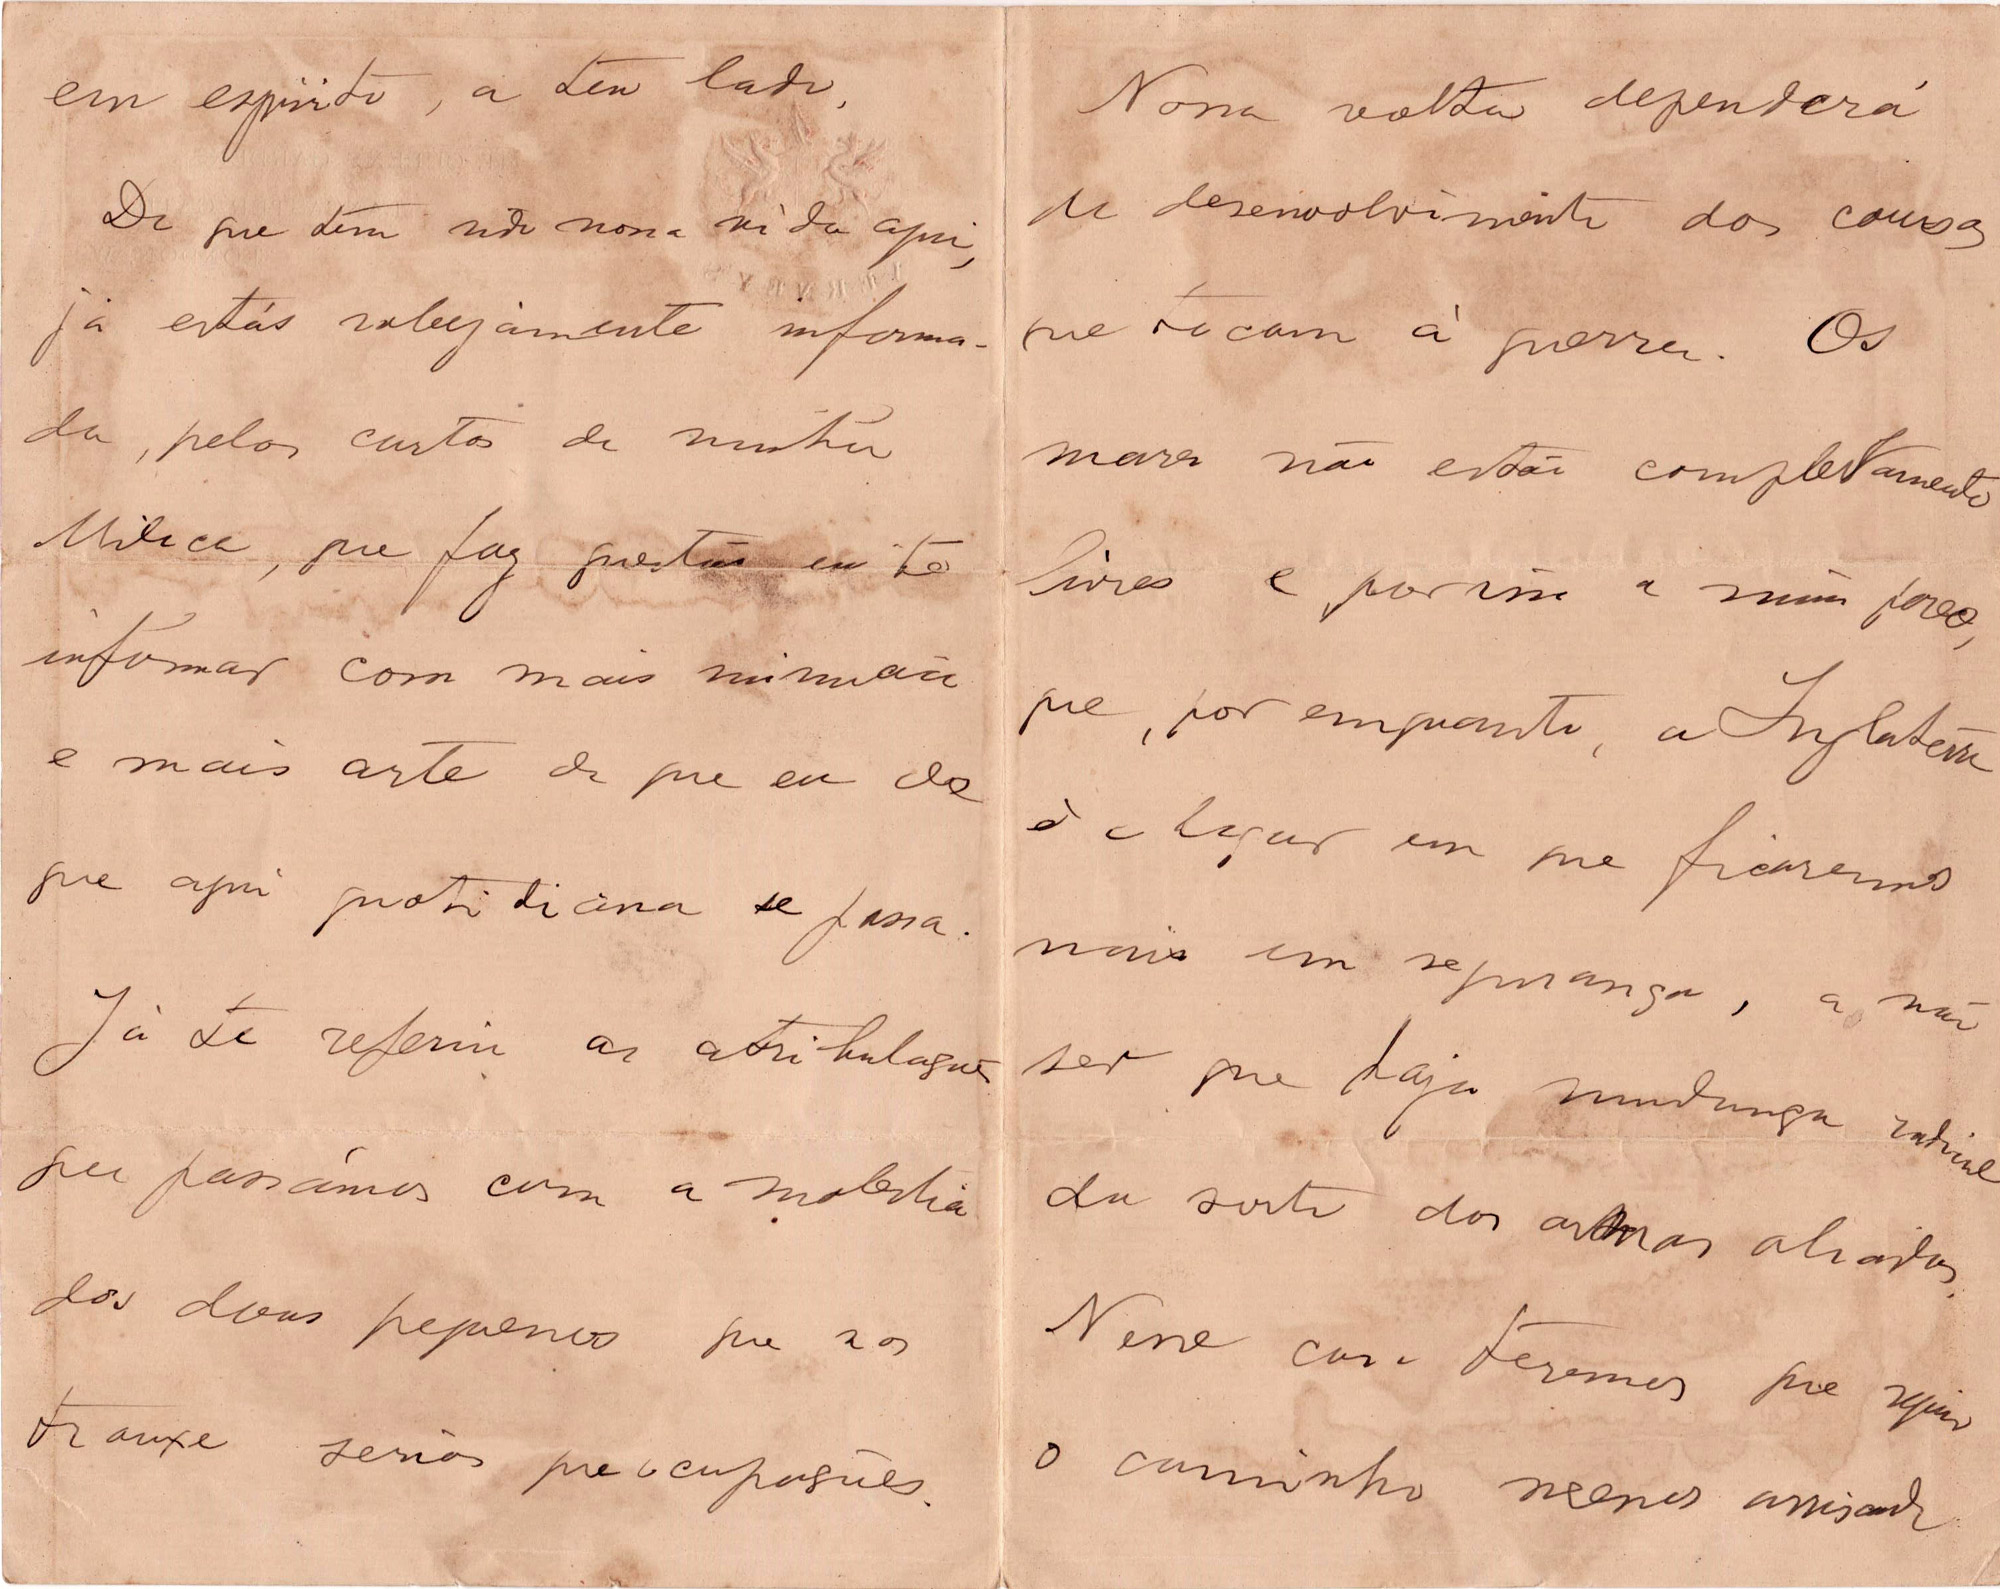 em espirito, a teu lado.
Do que tem sido nossa vida aqui,
já estás sobejamente informa-
da, pelas cartas de minha
Milóca, que faz questão em te
informar com mais minucia
e mais arte do que eu do
que aqui quotidiana se passa.
Já te referiu as atribulações
que passámos com a molestia
dos dous pequenos que nos
trouxe serias preocupações.
Nossa volta dependerá
do desenvolvimento das cousas
que tocam à guerra. Os
mares não estão completamente
livres e por isso a mim parece,
que, por emquanto, a Inglaterra
é o lugar em que ficaremos
mais em segurança, a não
ser que haja mudança radical
da sorte das armas aliadas.
Nesse caso teremos que seguir
o caminho menos arriscado